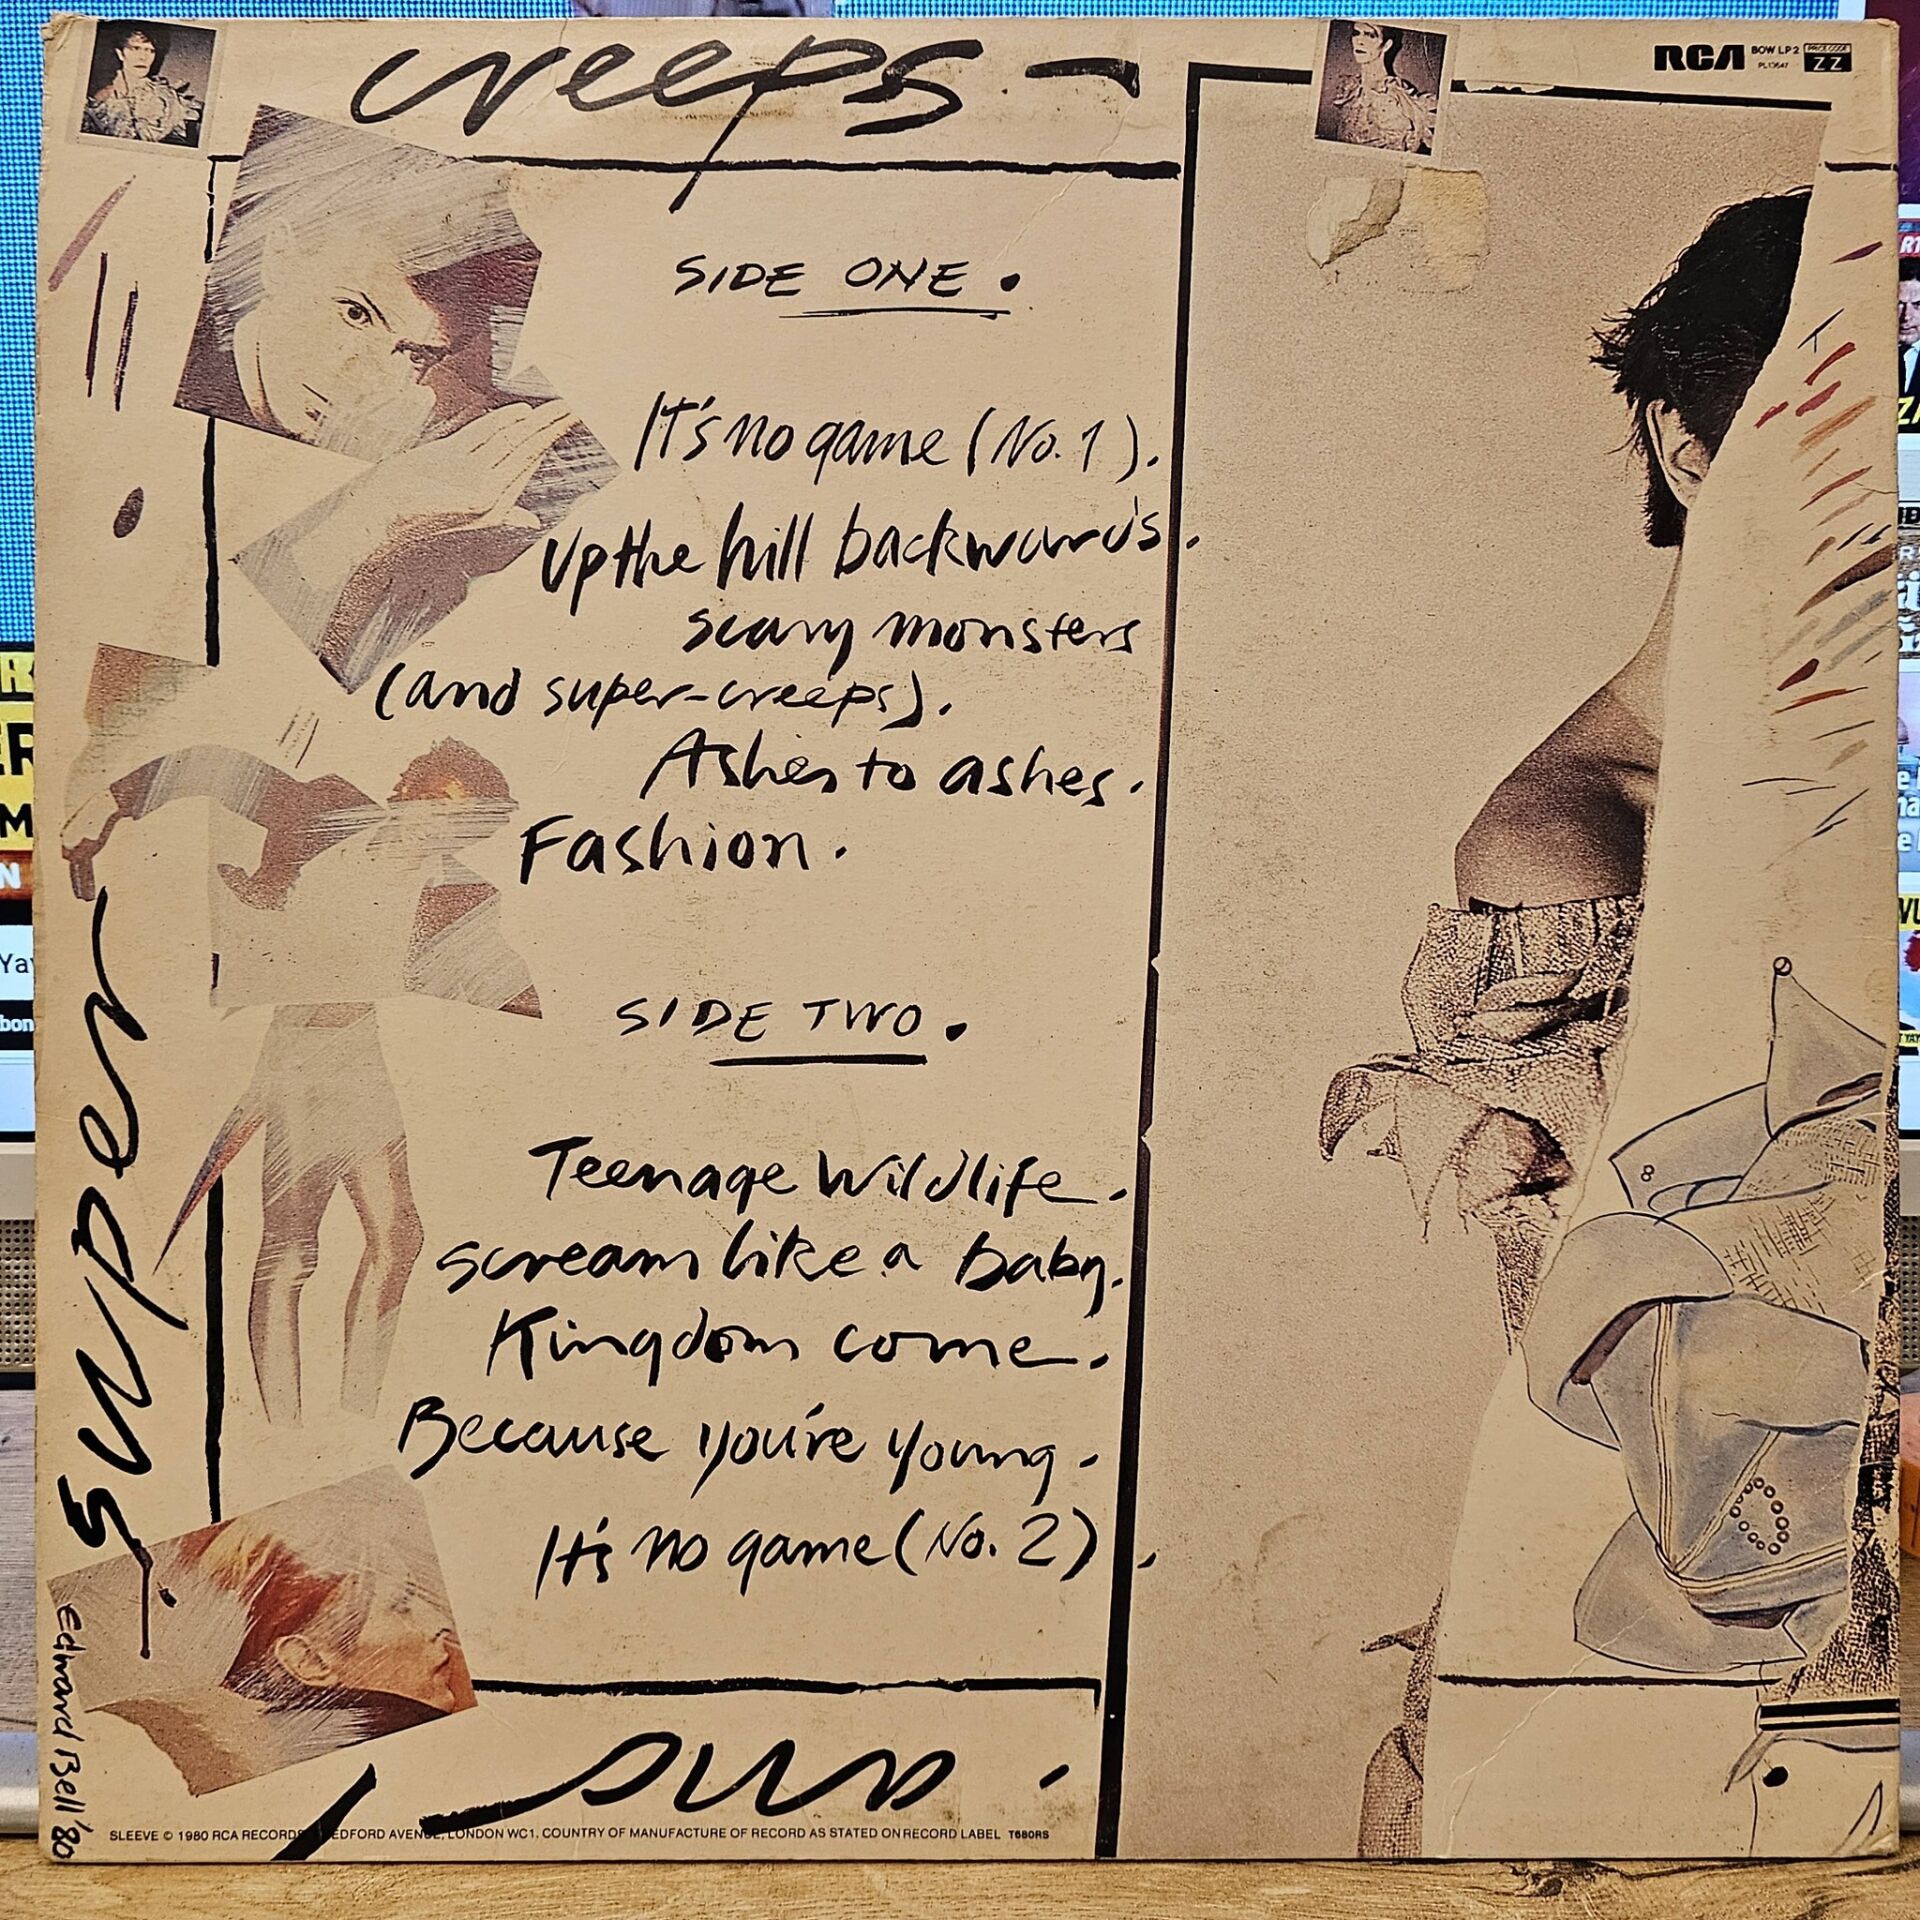 creeps -
RCA BOW LP 2 PRICE CODE
PL13647 ZZ
SIDE ONE.
It's no game (No. 1).
Up the hill backwards.
scary monsters
(and super-creeps).
Ashes to ashes.
Fashion.
SIDE TWO.
Teenage Wildlife.
scream like a baby.
Kingdom come.
Because you're young.
It's no game (No. 2).
super
Edward Bell '80
SLEEVE © 1980 RCA RECORDS EDFORD AVENUE, LONDON WC1. COUNTRY OF MANUFACTURE OF RECORD AS STATED ON RECORD LABEL T680RS